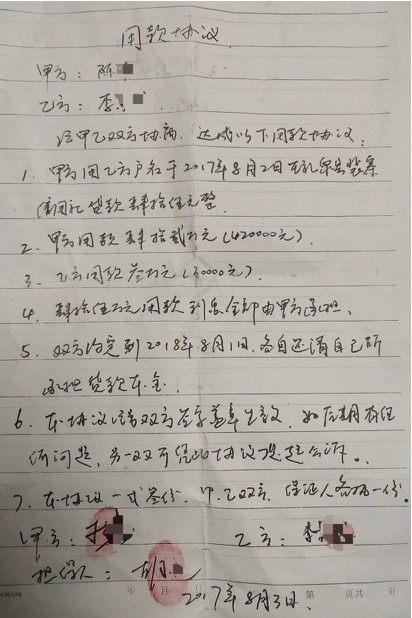 用款协议
甲方：陈
乙方：李
经甲乙双方协商，达成以下用款协议：
1、甲方用乙方户名于2017年8月2日在
信用社贷款肆拾伍元整
2、甲方用款肆拾贰万元（420000元）．
3、乙方用款叁万元（30000元）
4、肆拾伍万元用款利息全部由甲方承担、
5、双方约定到2018年8月1日、各自还清自己所
承担贷款本金．
6、本协议经双方签字盖章生效，如后期有任
何问题，另一双可凭此协议提起公诉。
7、本协议一式叁份，甲、乙双方、保证人各执一份。
甲方：
乙方：李
担保人：胡
年 月 第 页共 页
2017年8月3日．